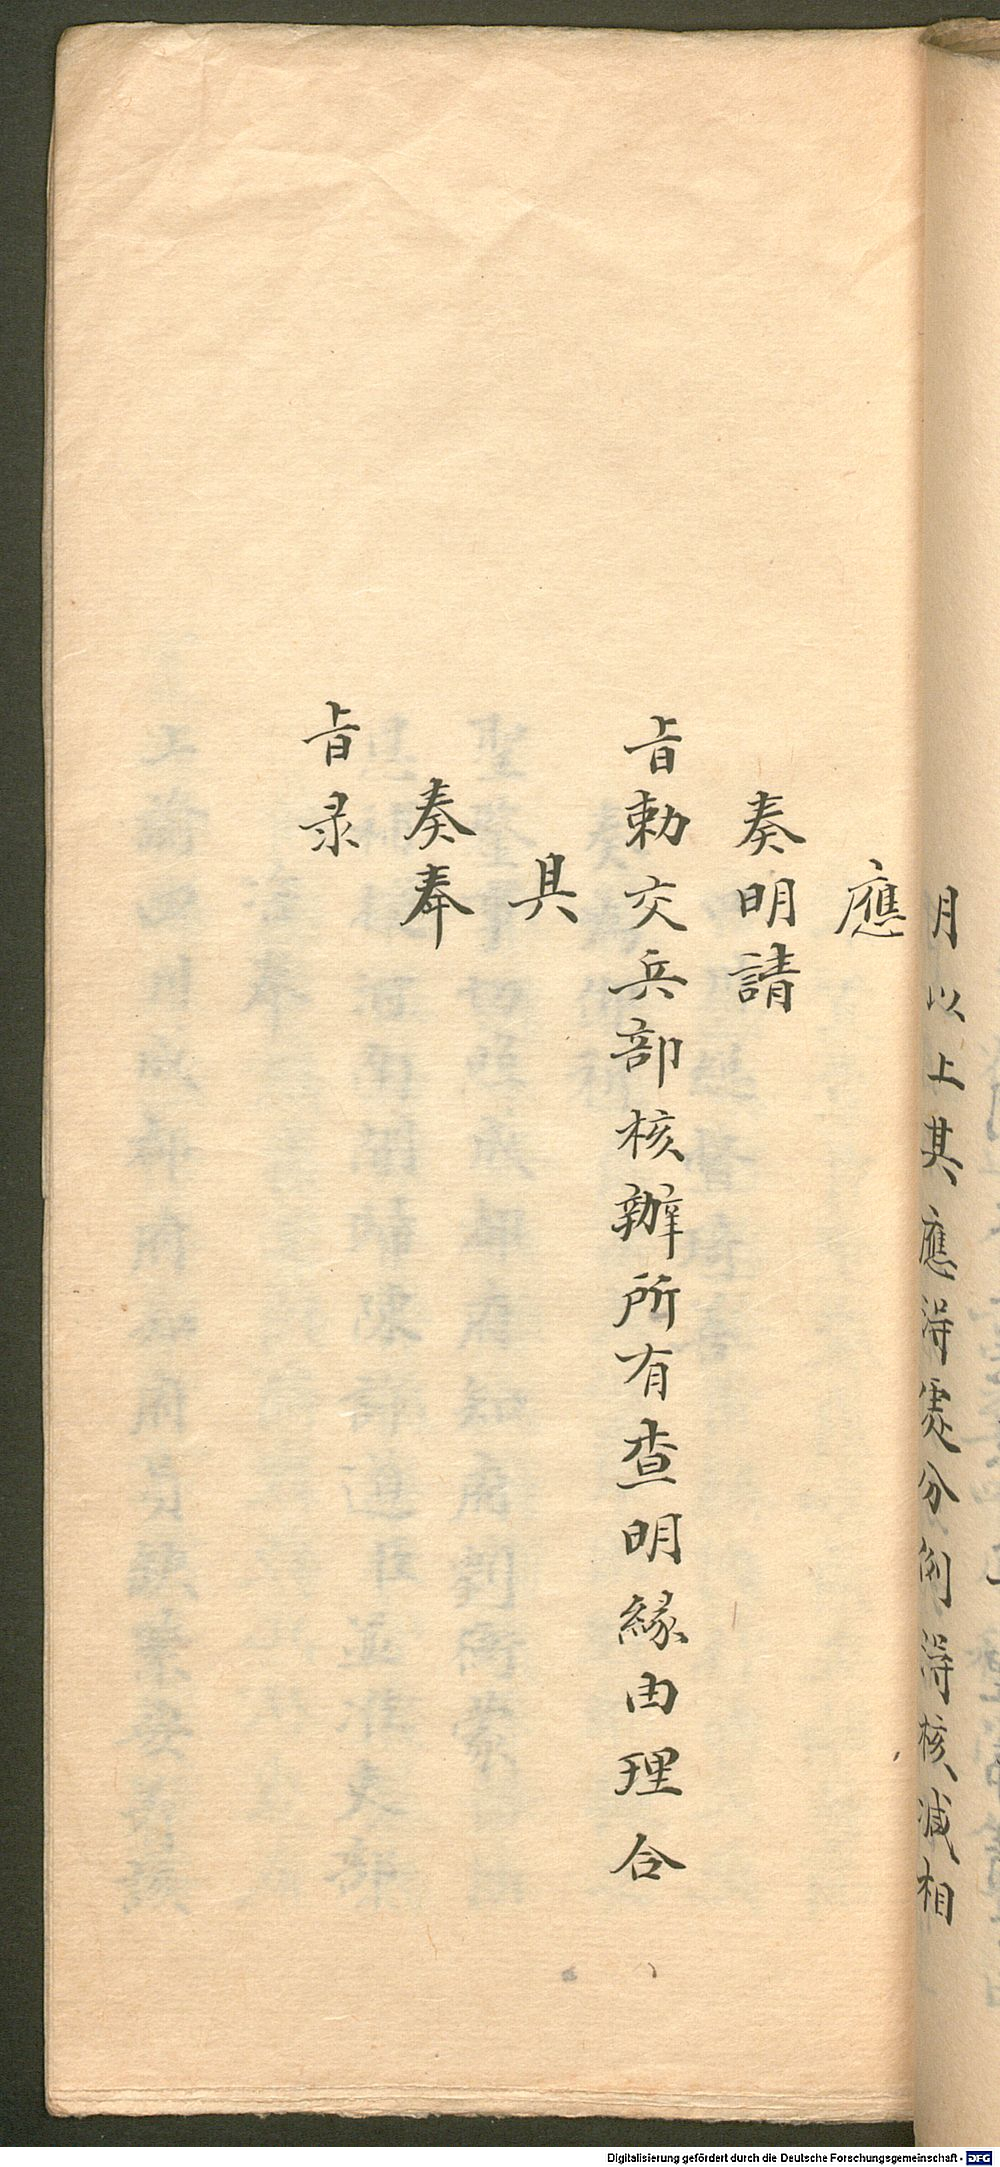 月以上其應得處分例得核減相
應
奏明請
旨勅交兵部核辦所有查明緣由理合
具
奏奉
旨录
Digitalisierung gefördert durch die Deutsche Forschungsgemeinschaft - DFG